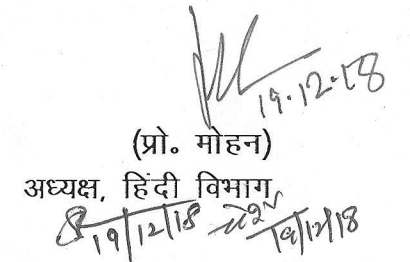 19.12.18
(प्रो. मोहन)
अध्यक्ष, हिंदी विभाग
19/12/18 19/12/18